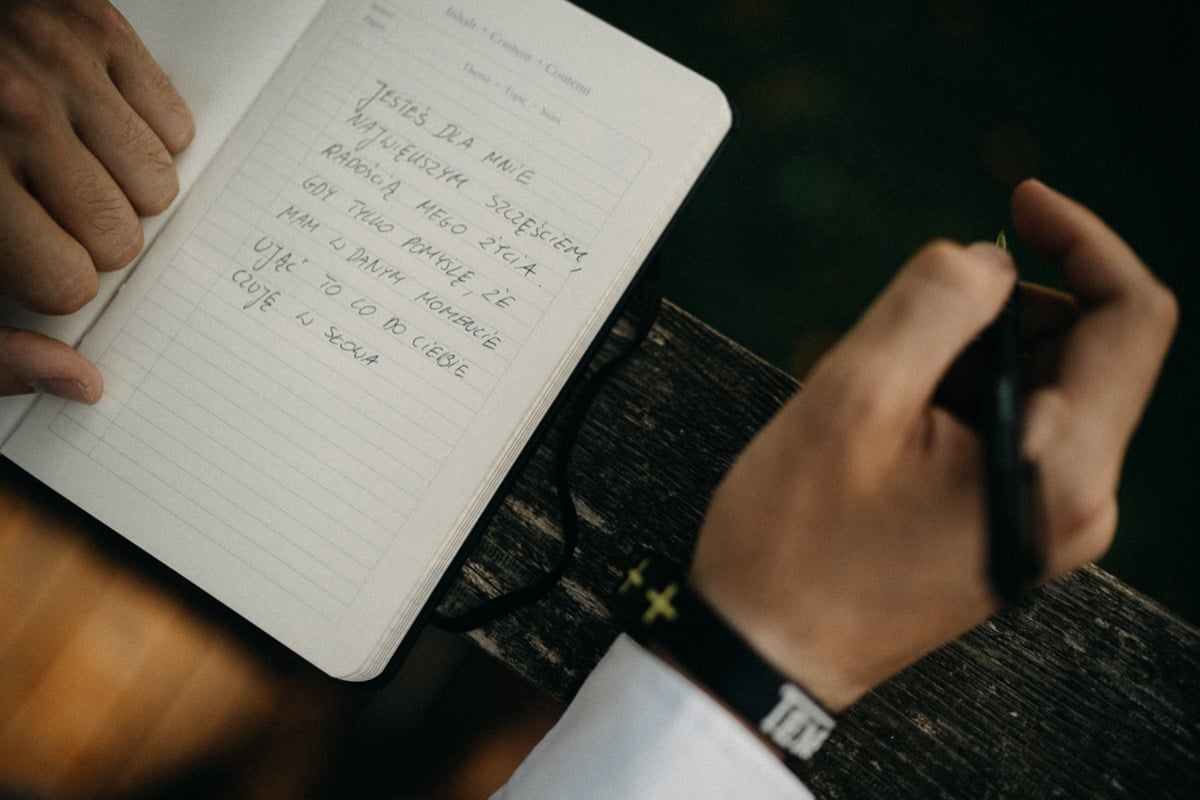 Inhalt · Content · Contenu
Thema · Topic · Sujet
JESTEŚ DLA MNIE
NAJWIĘKSZYM SZCZĘŚCIEM,
RADOŚCIĄ MEGO ŻYCIA.
GDY TYLKO POMYŚLĘ, ŻE
MAM W DANYM MOMENCIE
UJĄĆ TO CO DO CIEBIE
CZUJĘ W SŁOWA